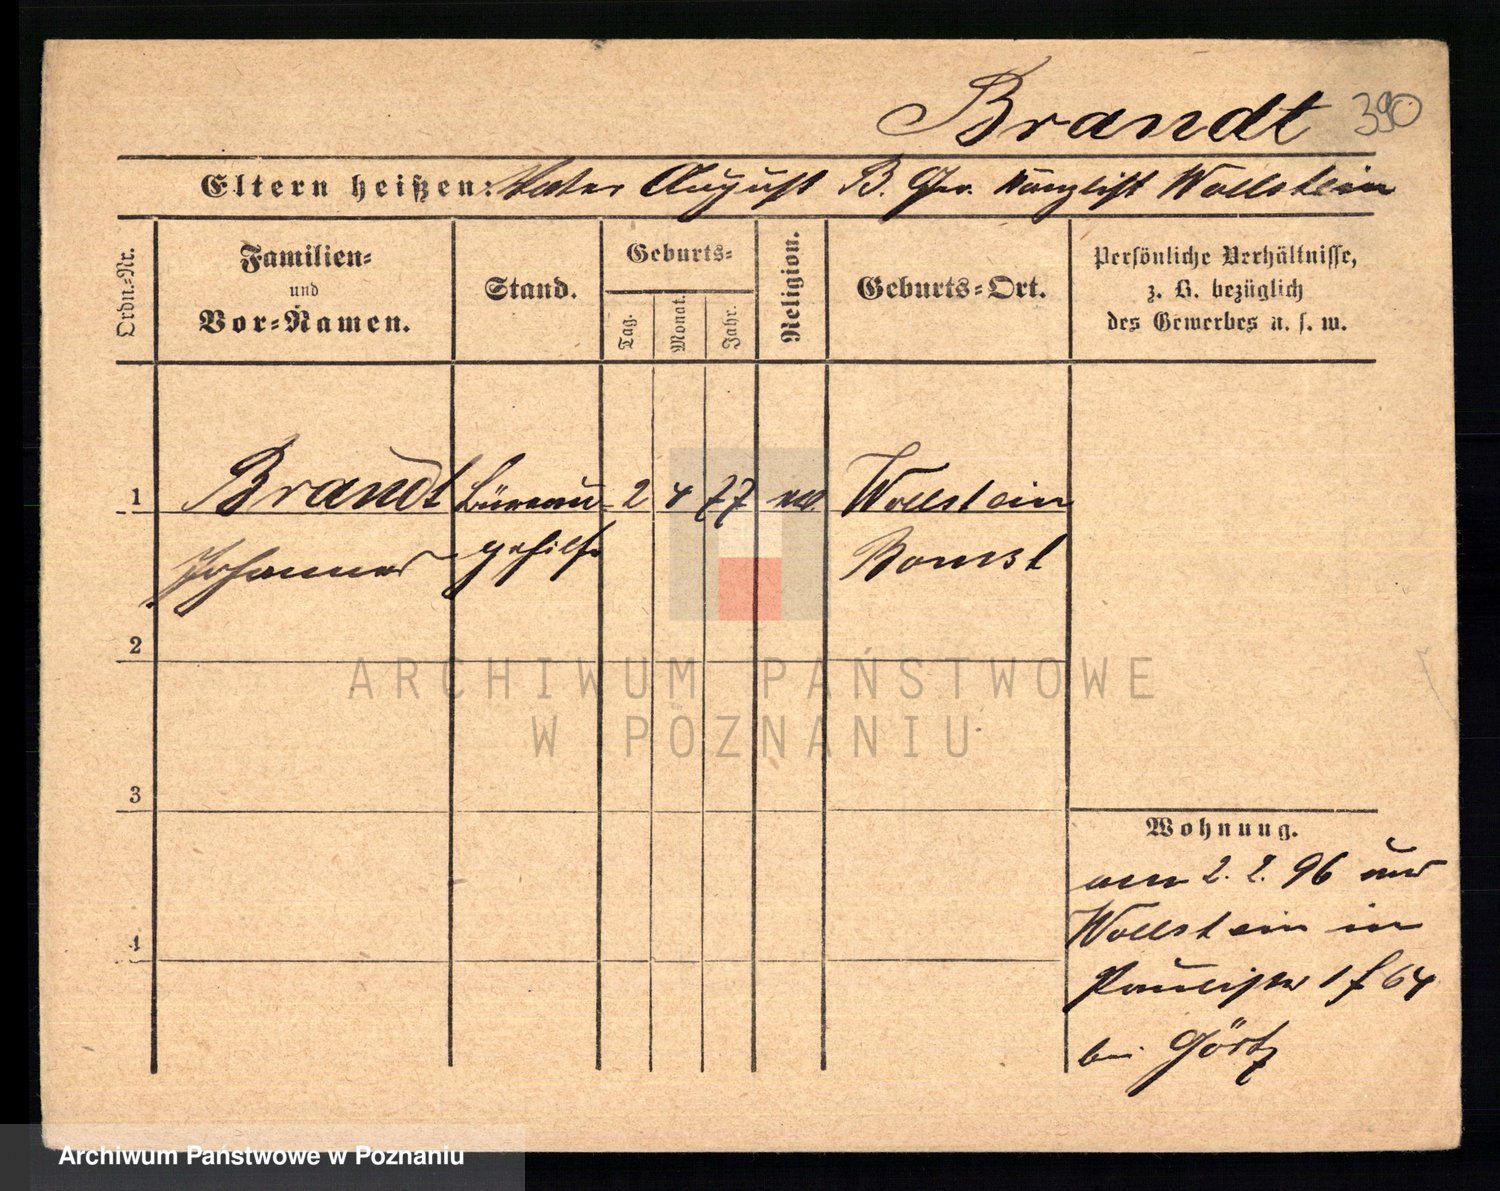 Brandt 390
Eltern heißen: Vater August B. Ger. Kanzlist Wollstein
Ordn.-Nr.
Familien-
und
Vor-Namen.
Stand.
Geburts-
Tag.
Monat.
Jahr.
Religion.
Geburts-Ort.
Persönliche Verhältnisse,
z. B. bezüglich
des Gewerbes u. s. w.
1 Brandt Büreau- 2 4 77 Wollstein
Johannes gehilfe Bomst
2
ARCHIWUM PAŃSTWOWE
W POZNANIU
3
Wohnung.
am 2. 2. 96 aus
Wollstein in
4
bei Görtz
Archiwum Państwowe w Poznaniu